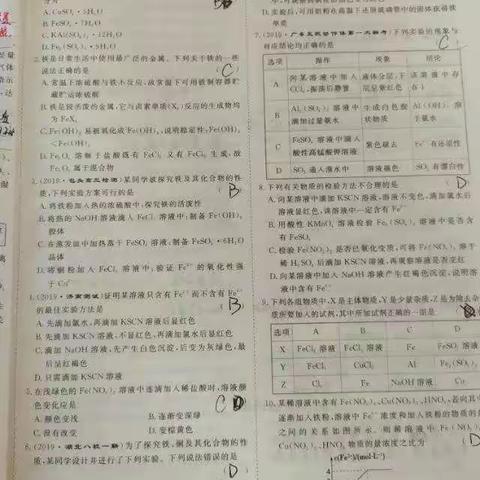 A. CuSO₄·5H₂O
B. FeSO₄·7H₂O
C. KAl(SO₄)₂·12H₂O
D. Fe₂(SO₄)₃·5H₂O
2. 铁是日常生活中使用最广泛的金属。下列关于铁的一些
说法正确的是
C
A. 常温下浓硫酸与铁不反应,故常温下可用铁制容器贮
藏贮运浓硫酸
B. 铁是较活泼的金属,它与卤素单质(X₂)反应的生成物均
为 FeX₃
C. Fe(OH)₂ 易被氧化成 Fe(OH)₃,说明稳定性:Fe(OH)₂
<Fe(OH)₃
溶解于盐酸既有 FeCl₂ 又有 FeCl₃ 生成,故
属于混合物
3. (2019·包头高三检测)某同学欲探究铁及其化合物的性
质,下列实验方案可行的是
B
A. 将铁粉加入热的浓硫酸中:探究铁的活泼性
B. 将热的 NaOH 溶液滴入 FeCl₂ 溶液中:制备 Fe(OH)₃
胶体
C. 在蒸发皿中加热蒸干 FeSO₄ 溶液:制备 FeSO₄·6H₂O
晶体
D. 将铜粉加入 FeCl₃ 溶液中:验证 Fe³⁺ 的氧化性强
于 Cu²⁺
4. (2019·济南测试)证明某溶液只含有 Fe²⁺ 而不含有 Fe³⁺
的最佳实验方法是
B
A. 先滴加氯水,再滴加 KSCN 溶液后显红色
B. 先滴加 KSCN 溶液,不显红色,再滴加氯水后显红色
C. 滴加 NaOH 溶液,先产生白色沉淀,后变为灰绿色,最
后呈红褐色
D. 只需滴加 KSCN 溶液
5. 在浅绿色的 Fe(NO₃)₂ 溶液中逐滴加入稀盐酸时,溶液颜
色变化应是
D
A. 颜色变浅 B. 逐渐变深绿
C. 没有改变 D. 变棕黄色
6. (2019·湖北八校一联)为了探究铁、铜及其化合物的性
质,某同学设计并进行了下列实验。下列说法错误的是
D
D. 实验后,可用铝粉在高温下还原玻璃管中的固体获得铁
单质
7. (2019·广东五校协作体第一次联考)下列实验的现象与
对应结论均正确的是
C
选项 操作 现象 结论
A 向某溶液中加入 CCl₄,振荡后静置 液体分层,下层呈紫红色 该溶液中存在 I⁻
B Al₂(SO₄)₃ 溶液中滴加过量氨水 生成白色胶状物质 Al(OH)₃ 溶于氨水
C FeSO₄ 溶液中滴入酸性高锰酸钾溶液 紫色褪去 Fe²⁺ 有还原性
D SO₂ 通入溴水中 溶液褪色 SO₂ 有漂白性
8. 下列有关物质的检验方法不合理的是
D
A. 向某溶液中滴入 KSCN 溶液,溶液不变色,滴加氯水后
溶液显红色,该溶液中一定含有 Fe²⁺
B. 用酸性 KMnO₄ 溶液检验 Fe₂(SO₄)₃ 溶液中是否含
有 FeSO₄
C. 检验 Fe(NO₃)₂ 是否已氧化变质,可将
稀 H₂SO₄ 后滴 KSCN 溶液,再观察溶液是否变红
D. 向某溶液中加入 NaOH 溶液产生红褐色沉淀,说明溶
液中含有 Fe³⁺
9. 下列各组物质中,X 是主体物质,Y 是少量杂质,Z 是为除去杂
质所要加入的试剂,其中所加试剂正确的一组是
选项 A B C D
X FeCl₂ 溶液 FeCl₃ 溶液 Fe FeSO₄ 溶液
Y FeCl₃ CuCl₂ Al Fe₂(SO₄)₃
Z Cl₂ Fe NaOH 溶液 Cu
10. 某稀溶液中含有 Fe(NO₃)₃、Cu(NO₃)₂、HNO₃,若向其中
逐渐加入铁粉,溶液中 Fe²⁺ 浓度和加入铁粉的物质的量
之间的关系如图所示。则稀溶液中 Fe(NO₃)₃、
Cu(NO₃)₂、HNO₃ 物质的量浓度之比为
D
c(Fe²⁺)/(mol·L⁻¹)
4